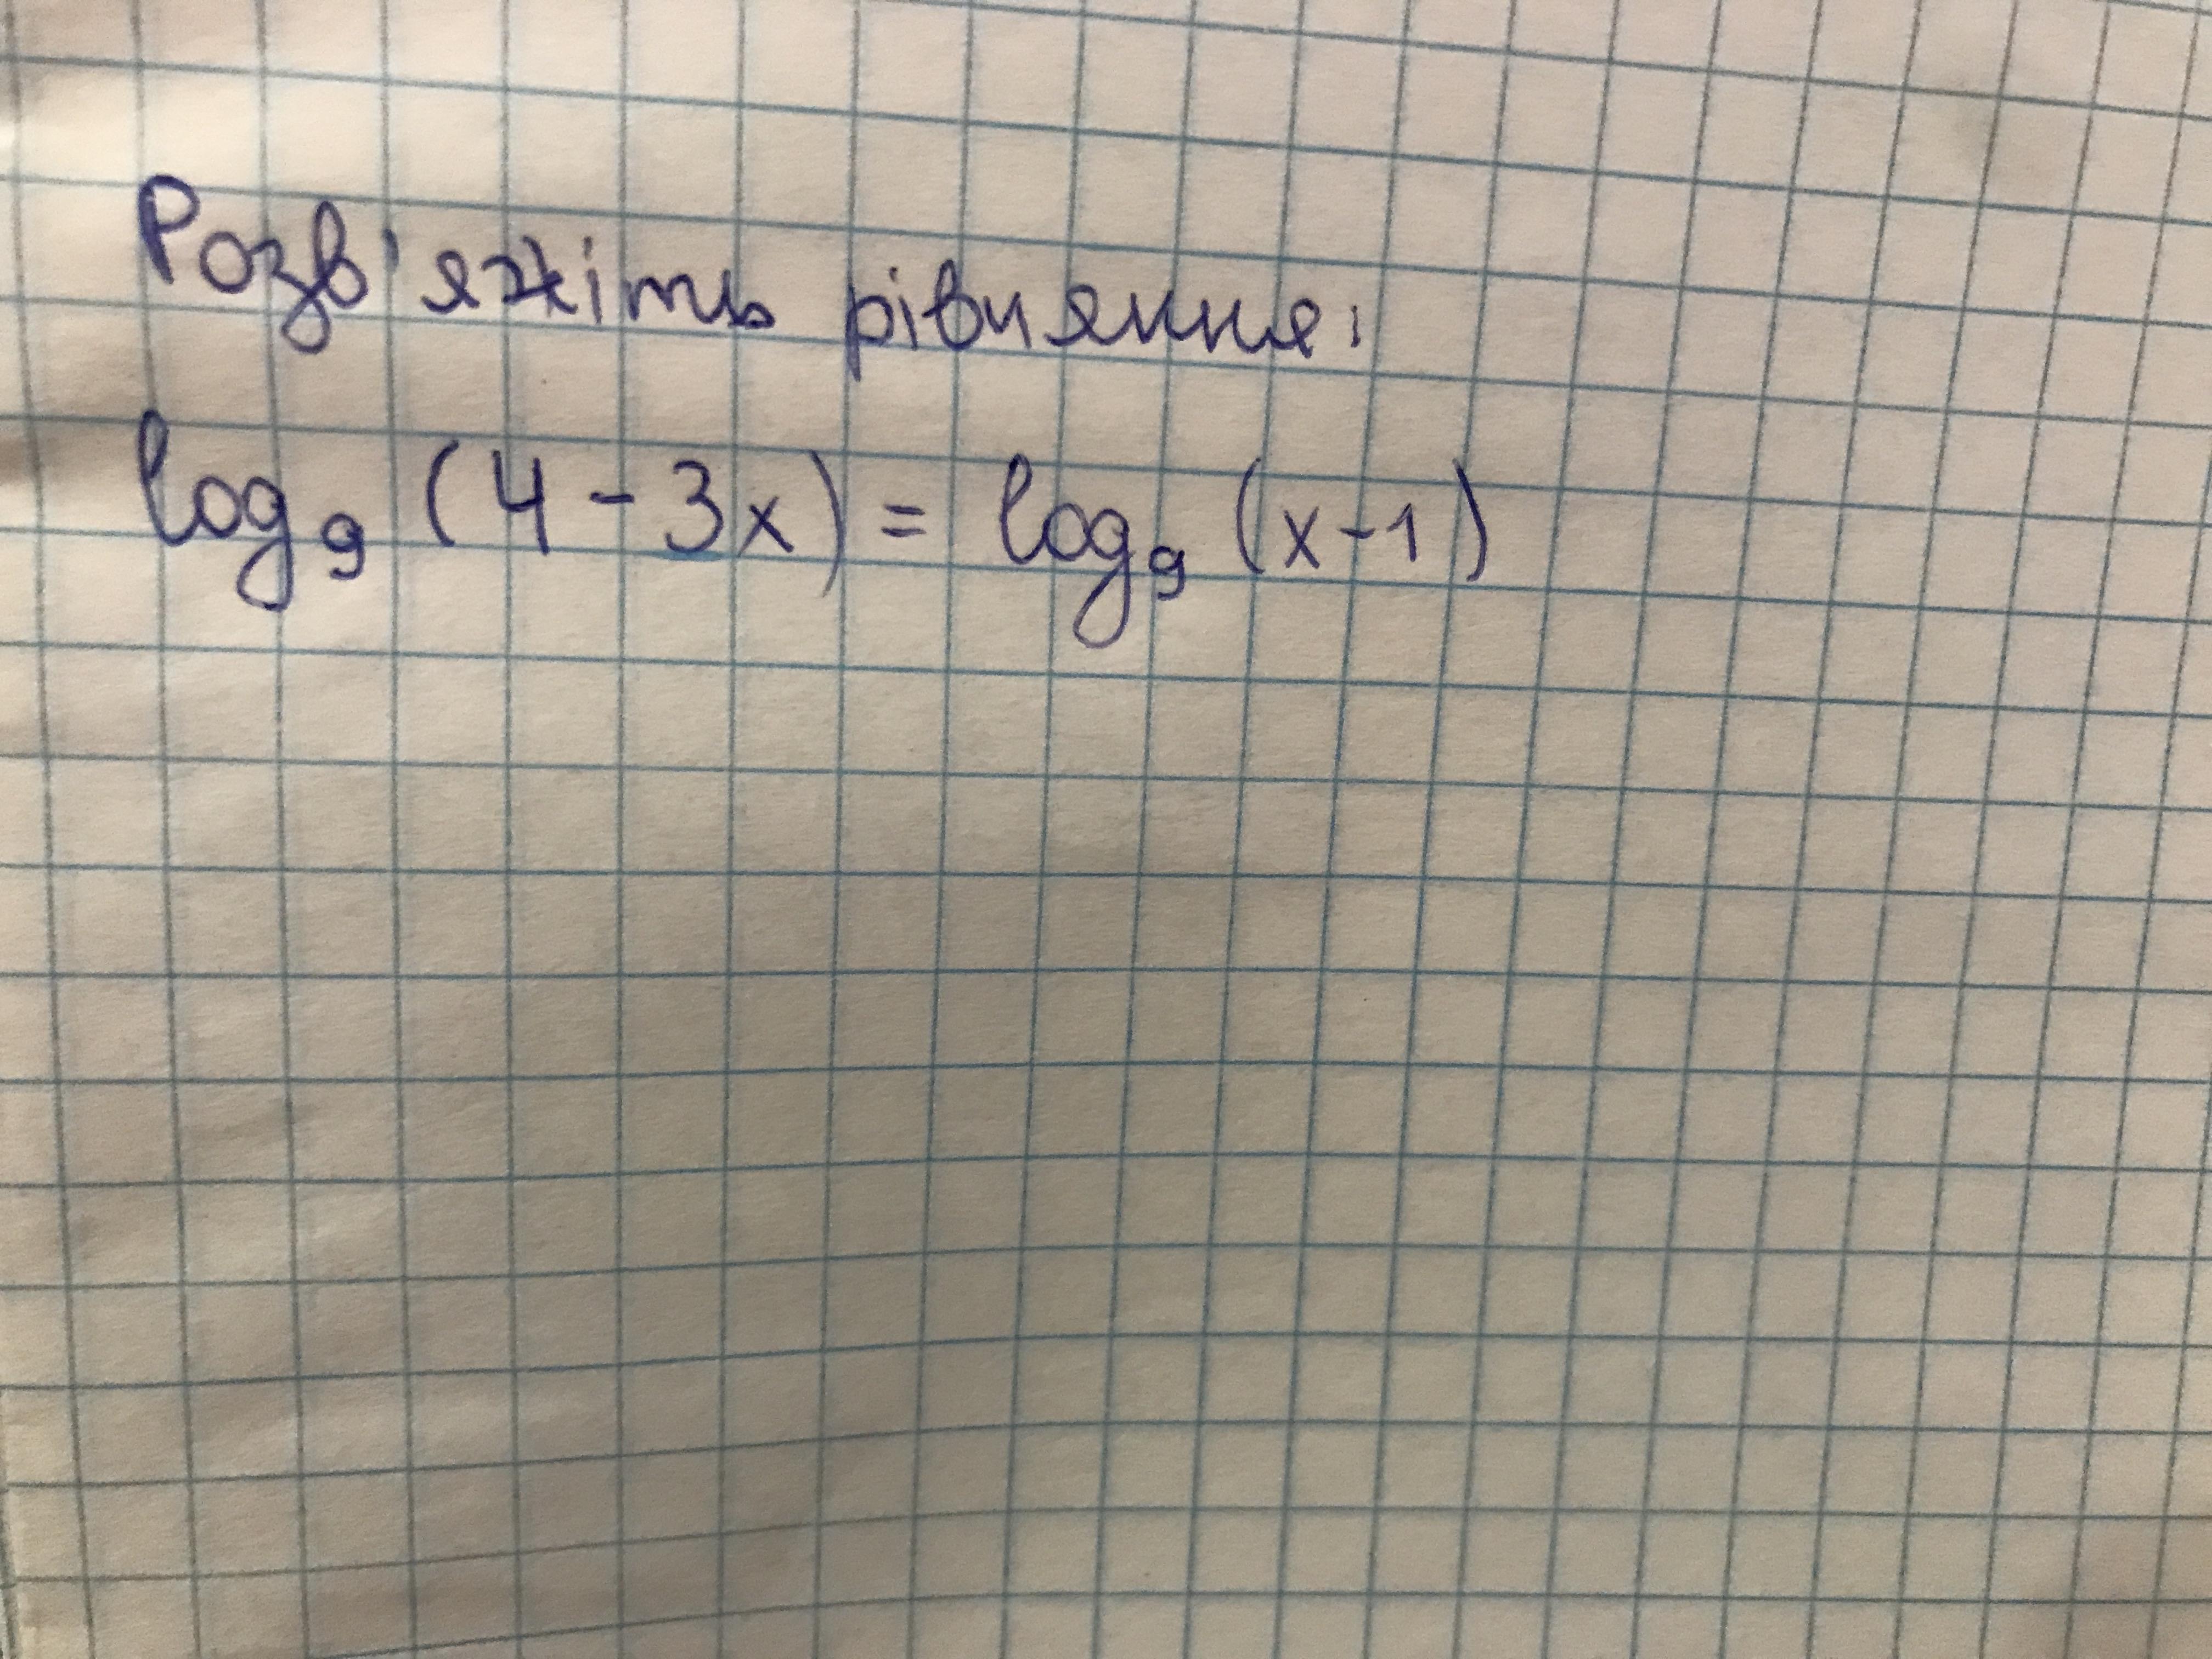 Розв'яжіть рівняння:
log₉ (4 - 3x) = log₉ (x-1)